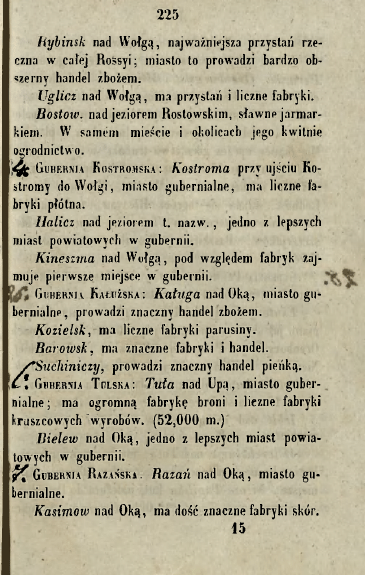 225
Rybinsk nad Wołgą, najważniejsza przystań rze-
czna w całej Rossyi; miasto to prowadzi bardzo ob-
szerny handel zbożem.
Uglicz nad Wołgą, ma przystań i liczne fabryki.
Bostow. nad jeziorem Rostowskim, sławne jarmar-
kiem. W samém mieście i okolicach jego kwitnie
ogrodnictwo.
4. GUBERNIA KOSTROMSKA: Kostroma przy ujściu Ko-
stromy do Wołgi, miasto gubernialne, ma liczne fa-
bryki płótna.
Halicz nad jeziorem t. nazw., jedno z lepszych
miast powiatowych w gubernii.
Kineszma nad Wołgą, pod względem fabryk zaj-
muje pierwsze miejsce w gubernii.
GUBERNIA KAŁUŻSKA: Kaługa nad Oką, miasto gu-
bernialne, prowadzi znaczny handel zbożem.
Kozielsk, ma liczne fabryki parusiny.
Barowsk, ma znaczne fabryki i handel.
Suchiniczy, prowadzi znaczny handel pieńką.
GUBERNIA TULSKA: Tuta nad Upą, miasto guber-
nialne; ma ogromną fabrykę broni i liczne fabryki
kruszcowych wyrobów. (52,000 m.)
Bielew nad Oką, jedno z lepszych miast powia-
towych w gubernii.
7. GUBERNIA RAZAŃSKA. Razań nad Oką, miasto gu-
bernialne.
Kasimow nad Oką, ma dość znaczne fabryki skór.
15